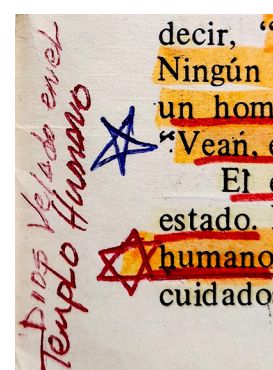 Dios Velada en el
Templo Humano
decir, “
Ningún
un hom
“Vean, e
El e
estado.
humano
cuidado